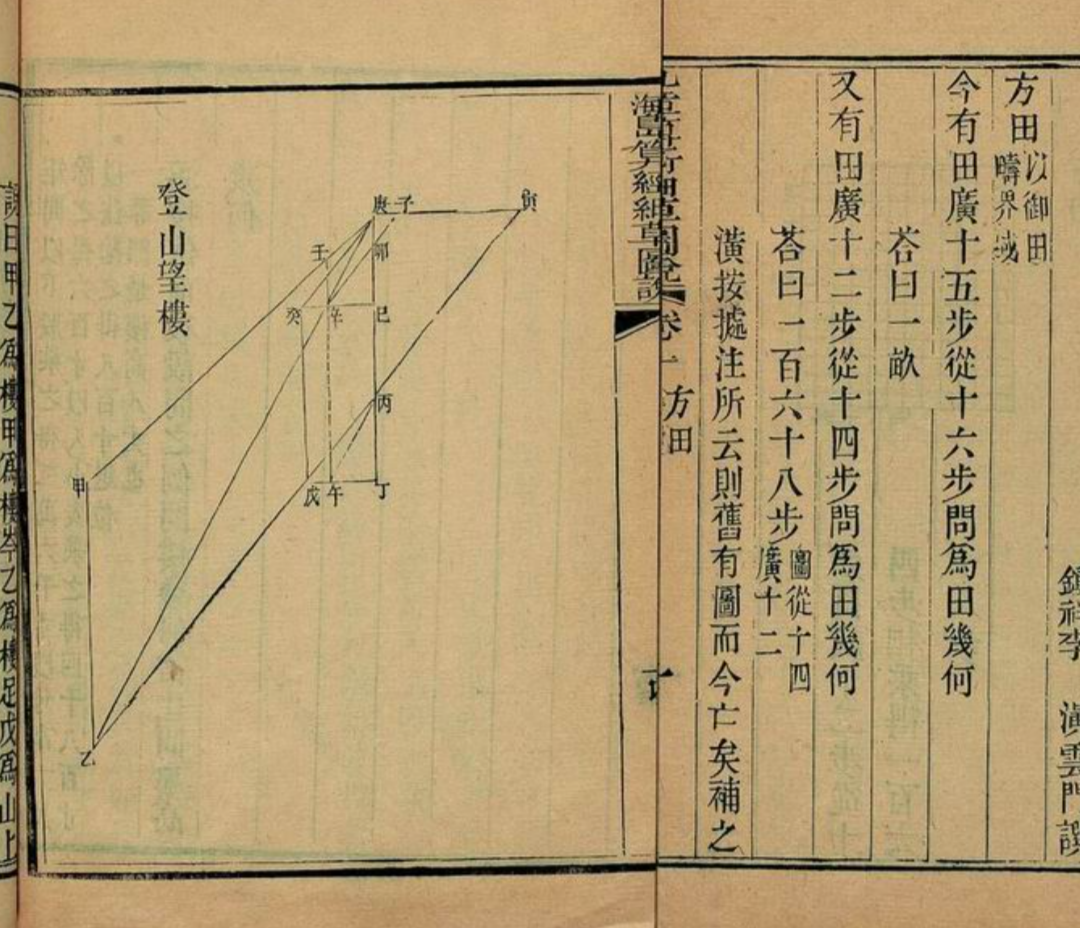 鍾祥李潢雲門譔
方田以御田疇界域
今有田廣十五步從十六步問爲田幾何
荅曰一畝
又有田廣十二步從十四步問爲田幾何
荅曰一百六十八步圖從十四廣十二
潢按據注所云則舊有圖而今亡矣補之
卷一 方田
一
海島算經細草圖說
寅
子
庚
卯
壬
癸
辛
巳
丙
丁
午
戊
甲
乙
登山望樓
說曰甲乙爲樓甲爲樓岑乙爲樓足戊爲山上